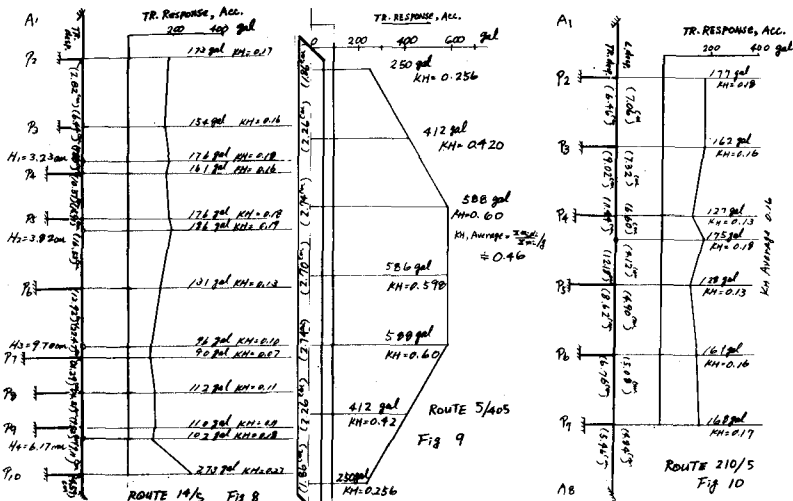 A1
TR. RESPONSE, Acc.
200 400 gal
P2
173 gal KH=0.17
P3
154 gal KH=0.16
H1=3.23cm
176 gal KH=0.18
P4
161 gal KH=0.16
P5
176 gal KH=0.18
H2=3.82cm
186 gal KH=0.19
P6
131 gal KH=0.13
H3=9.70cm
96 gal KH=0.10
P7
90 gal KH=0.07
P8
112 gal KH=0.11
P9
110 gal
H4=6.17cm
102 gal
P10
273 gal KH=0.27
ROUTE 14/5 Fig 8
TR. RESPONSE, Acc.
0 200 400 600 gal
(1.86cm)
250 gal
KH=0.256
(2.26cm)
412 gal
KH=0.420
(2.74cm)
588 gal
KH=0.60
KH, Average =
≒0.46
(2.70cm)
586 gal
KH=0.598
(2.74cm)
588 gal
KH=0.60
(2.26cm)
412 gal
KH=0.42
(1.86cm)
250 gal
KH=0.256
ROUTE 5/405
Fig 9
A1
TR. RESPONSE, Acc.
200 400 gal
TR. disp.
L disp.
P2
177 gal
KH=0.18
(6.46cm) (7.06cm)
P3
162 gal
KH=0.16
(9.02cm) (7.32cm)
P4
127 gal
KH=0.13
(6.60cm)
175 gal
KH=0.18
(9.12cm)
P5
128 gal
KH=0.13
(8.62cm) (4.90cm)
P6
161 gal
KH=0.16
(6.78cm) (5.08cm)
P7
168 gal
KH=0.17
KH Average 0.16
A8
ROUTE 210/5
Fig 10